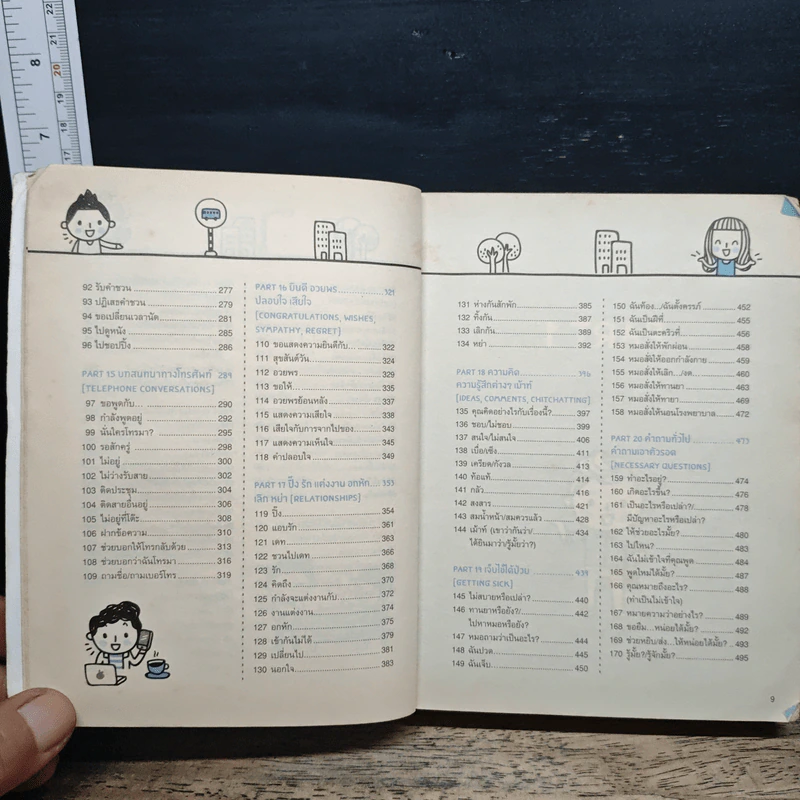 92 รับคำชวน 277
93 ปฏิเสธคำชวน 279
94 ขอเปลี่ยนเวลานัด 281
95 ไปดูหนัง 285
96 ไปชอปปิ้ง 286
PART 15 บทสนทนาทางโทรศัพท์ 289
[TELEPHONE CONVERSATIONS]
97 ขอพูดกับ... 290
98 กำลังพูดอยู่ 292
99 นั่นใครโทรมา? 295
100 รอสักครู่ 298
101 ไม่อยู่ 300
102 ไม่ว่างรับสาย 302
103 ติดประชุม 304
104 ติดสายอื่นอยู่ 306
105 ไม่อยู่ที่โต๊ะ 308
106 ฝากข้อความ 310
107 ช่วยบอกให้โทรกลับด้วย 313
108 ช่วยบอกว่าฉันโทรมา 316
109 ถามชื่อ/ถามเบอร์โทร 319
PART 16 ยินดี อวยพร 321
ปลอบใจ เสียใจ
[CONGRATULATIONS, WISHES,
SYMPATHY, REGRET]
110 ขอแสดงความยินดีกับ... 322
111 สุขสันต์วัน 324
112 อวยพร 329
113 ขอให้ 335
114 อวยพรย้อนหลัง 337
115 แสดงความเสียใจ 338
116 เสียใจกับการจากไปของ 343
117 แสดงความเห็นใจ 345
118 คำปลอบใจ 349
PART 17 ปิ๊ง รัก แต่งงาน อกหัก 353
เลิก หย่า [RELATIONSHIPS]
119 ปิ๊ง 354
120 แอบรัก 361
121 เดท 363
122 ชวนไปเดท 366
123 รัก 368
124 คิดถึง 370
125 กำลังจะแต่งงานกับ 372
126 งานแต่งงาน 374
127 อกหัก 375
128 เข้ากันไม่ได้ 379
129 เปลี่ยนไป 381
130 นอกใจ 383
131 ห่างกันสักพัก 385
132 ทิ้งกัน 387
133 เลิกกัน 389
134 หย่า 392
PART 18 ความคิด 396
ความรู้สึกต่างๆ เม้าท์
[IDEAS, COMMENTS, CHITCHATTING]
135 คุณคิดอย่างไรกับเรื่องนี้? 397
136 ชอบ/ไม่ชอบ 399
137 สนใจ/ไม่สนใจ 406
138 เบื่อ/เซ็ง 411
139 เครียด/กังวล 413
140 ท้อแท้ 414
141 กลัว 416
142 สงสาร 421
143 สมน้ำหน้า/สมควรแล้ว 428
144 เม้าท์ (เขาว่ากันว่า/ 434
ได้ยินมาว่า/รู้มั้ยว่า?)
PART 19 เจ็บไข้ได้ป่วย 439
[GETTING SICK]
145 ไม่สบายหรือเปล่า? 440
146 ทานยาหรือยัง?/ 442
ไปหาหมอหรือยัง?
147 หมอถามว่าเป็นอะไร? 444
148 ฉันปวด 445
149 ฉันเจ็บ 450
150 ฉันท้อง.../ฉันตั้งครรภ์ 452
151 ฉันเป็นฝีที่ 455
152 ฉันเป็นตะคริวที่ 456
153 หมอสั่งให้พักผ่อน 458
154 หมอสั่งให้ออกกำลังกาย 459
155 หมอสั่งให้เลิก.../งด 460
156 หมอสั่งให้ทานยา 463
157 หมอสั่งให้ทายา 469
158 หมอสั่งให้นอนโรงพยาบาล 472
PART 20 คำถามทั่วไป 473
คำถามเอาตัวรอด
[NECESSARY QUESTIONS]
159 ทำอะไรอยู่? 474
160 เกิดอะไรขึ้น? 476
161 เป็นอะไรหรือเปล่า?/ 478
มีปัญหาอะไรหรือเปล่า?
162 ให้ช่วยอะไรมั้ย? 480
163 ไปไหน? 483
164 ฉันไม่เข้าใจที่คุณพูด 485
165 พูดใหม่ได้มั้ย? 487
166 คุณหมายถึงอะไร? 488
(ทำเป็นไม่เข้าใจ)
167 หมายความว่าอย่างไร? 489
168 ขอยืม...หน่อยได้มั้ย? 492
169 ช่วยหยิบ/ส่ง...ให้หน่อยได้มั้ย? 493
170 รู้มั้ย?/รู้จักมั้ย? 495
9
22
21
20
19
18
17
8
7